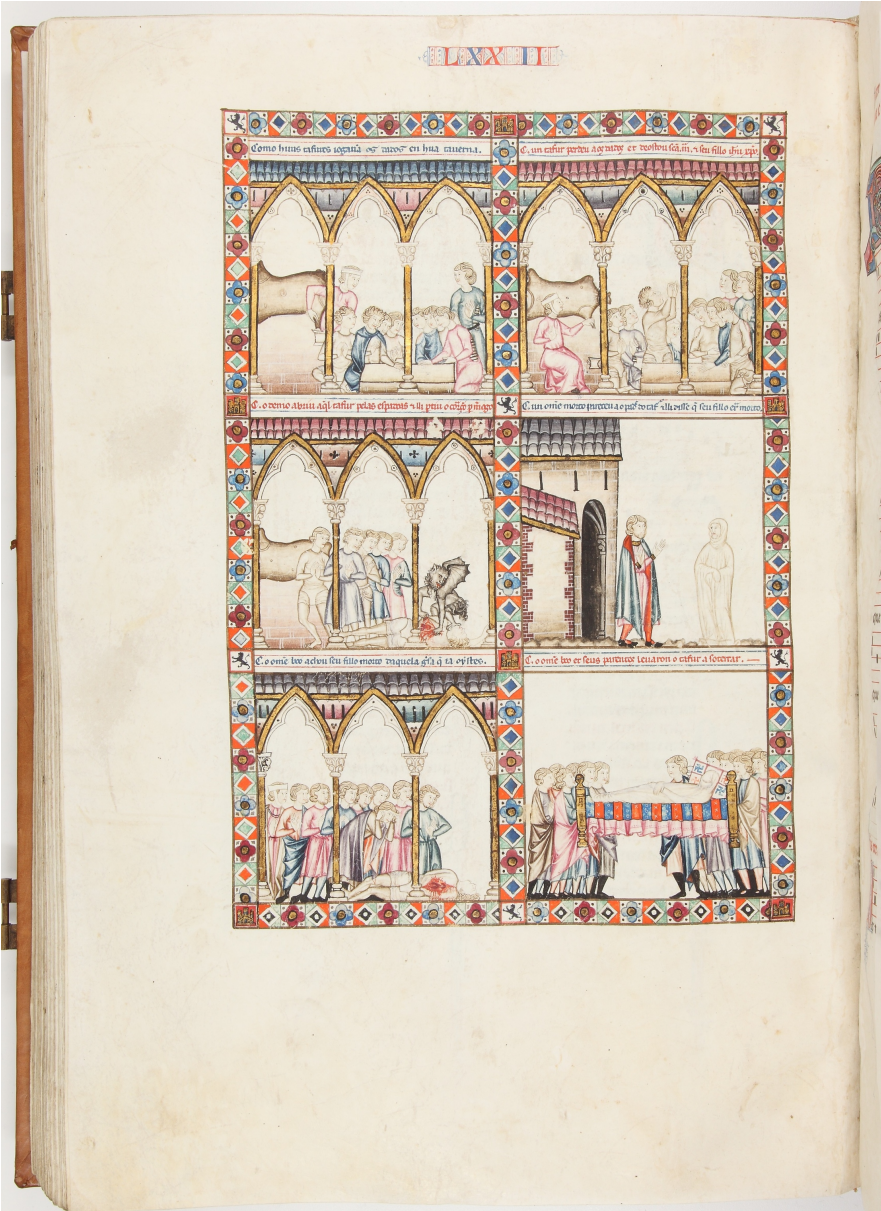 LXXII
Como huus tafures iogauā os dados en hūa tauerna.
C. un tafur perdeu aos dados et deostou scā. m̄. ⁊ seu fillo ihū xp̄o
C. o demo abriu aq̄l tafur pelas espadoas ⁊ lli
C. un ome morto pareceu ao padre do taf᷑ ⁊ lli disse q̄ seu fillo er̄ morto.
C. o ome bōo achou seu fillo morto daquela guisa q̄ ia oystes.
C. o ome bōo et seus parentes leuaron o tafur a soterrar.